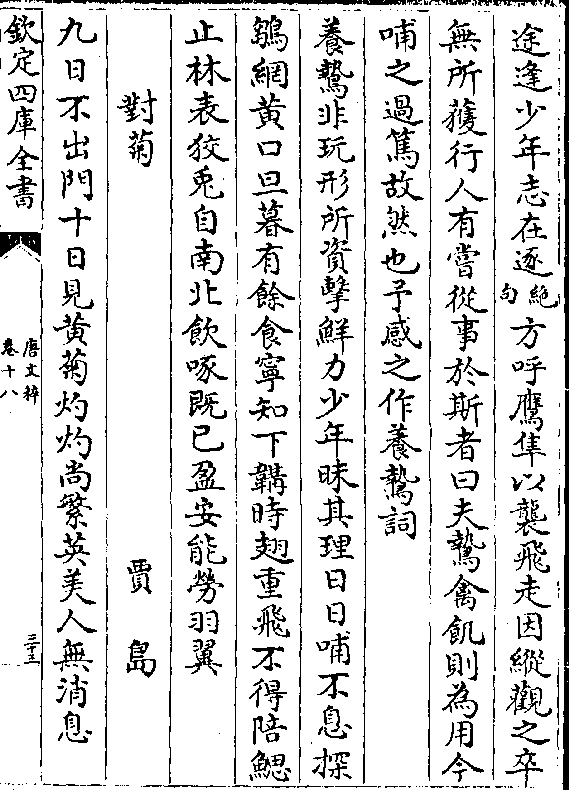 途逢少年志在逐絶句方呼鷹隼以襲飛走因縱觀之卒
無所獲行人有嘗從事於斯者曰夫鷙禽飢則為用今
哺之過篤故然也予感之作養鷙詞
養鷙非玩形所資擊鮮力少年昧其理日日哺不息探
鶵網黄口旦暮有餘食寧知下鞲時翅重飛不得陪鰓
止林表狡兎自南北飲啄既已盈安能勞羽翼
對菊 賈島
九日不出門十日見黄菊灼灼尚繁英美人無消息
欽定四庫全書
唐文粹
卷十八
三十三